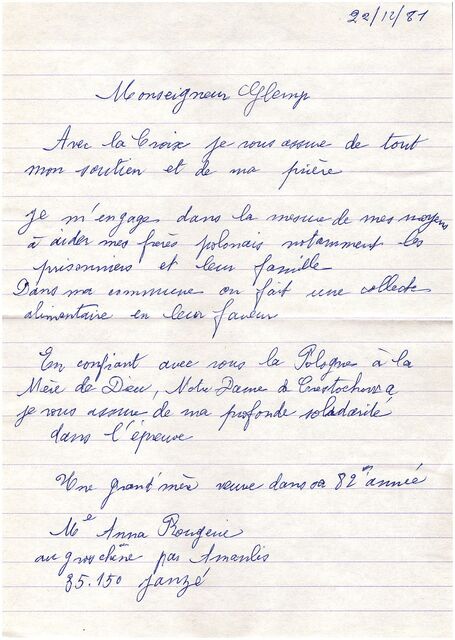 22/12/81
Monseigneur Glemp
Avec la Croix je vous assure de tout
mon soutien et de ma prière
Je m'engage dans la mesure de mes moyens
à aider mes frères polonais notamment les
prisonniers et leur famille
Dans ma commune on fait une collecte
alimentaire en leur faveur
En confiant avec vous la Pologne à la
Mère de Dieu, Notre Dame de Czestochowa
je vous assure de ma profonde solidarité
dans l'épreuve
Une grand'mère veuve dans sa 82 em année
Me Anna Rougerie
au gros chêne par Amanlis
35.150 Janzé